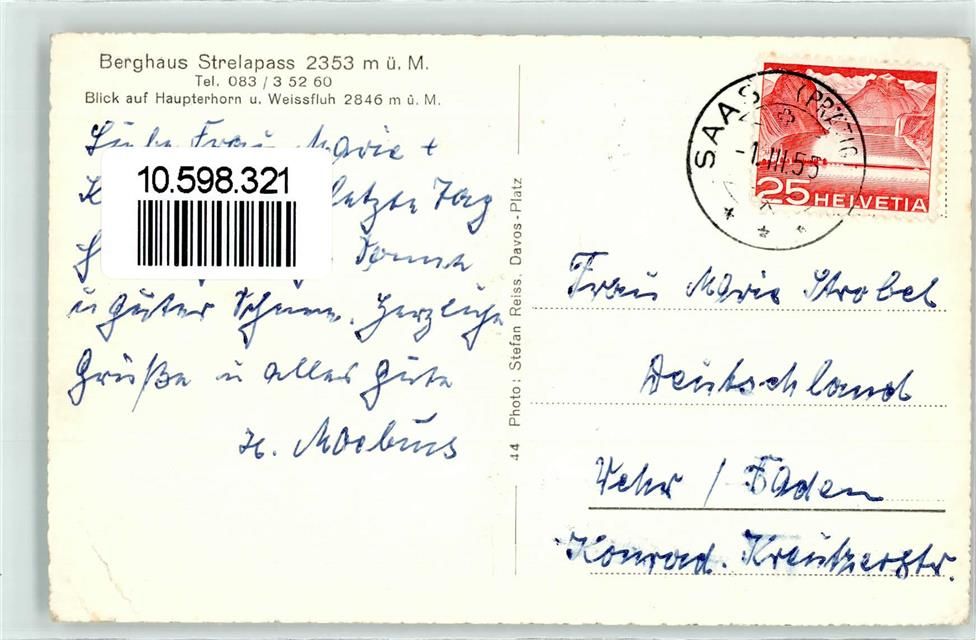 Berghaus Strelapass 2353 m ü. M.
Tel. 083 / 3 52 60
Blick auf Haupterhorn u. Weissfluh 2846 m ü. M.
Liebe Frau Marie +
10.598.321
letzten Tag
Sonne
u guter Schnee. Herzliche
Grüße u alles Gute
H. Moebus
44 Photo: Stefan Reiss, Davos-Platz
SAAS (PRÄTIG.)
-1.III.55
25 HELVETIA
Frau Marie Strobel
Deutschland
Wehr / Baden
Konrad. Kreutzerstr.